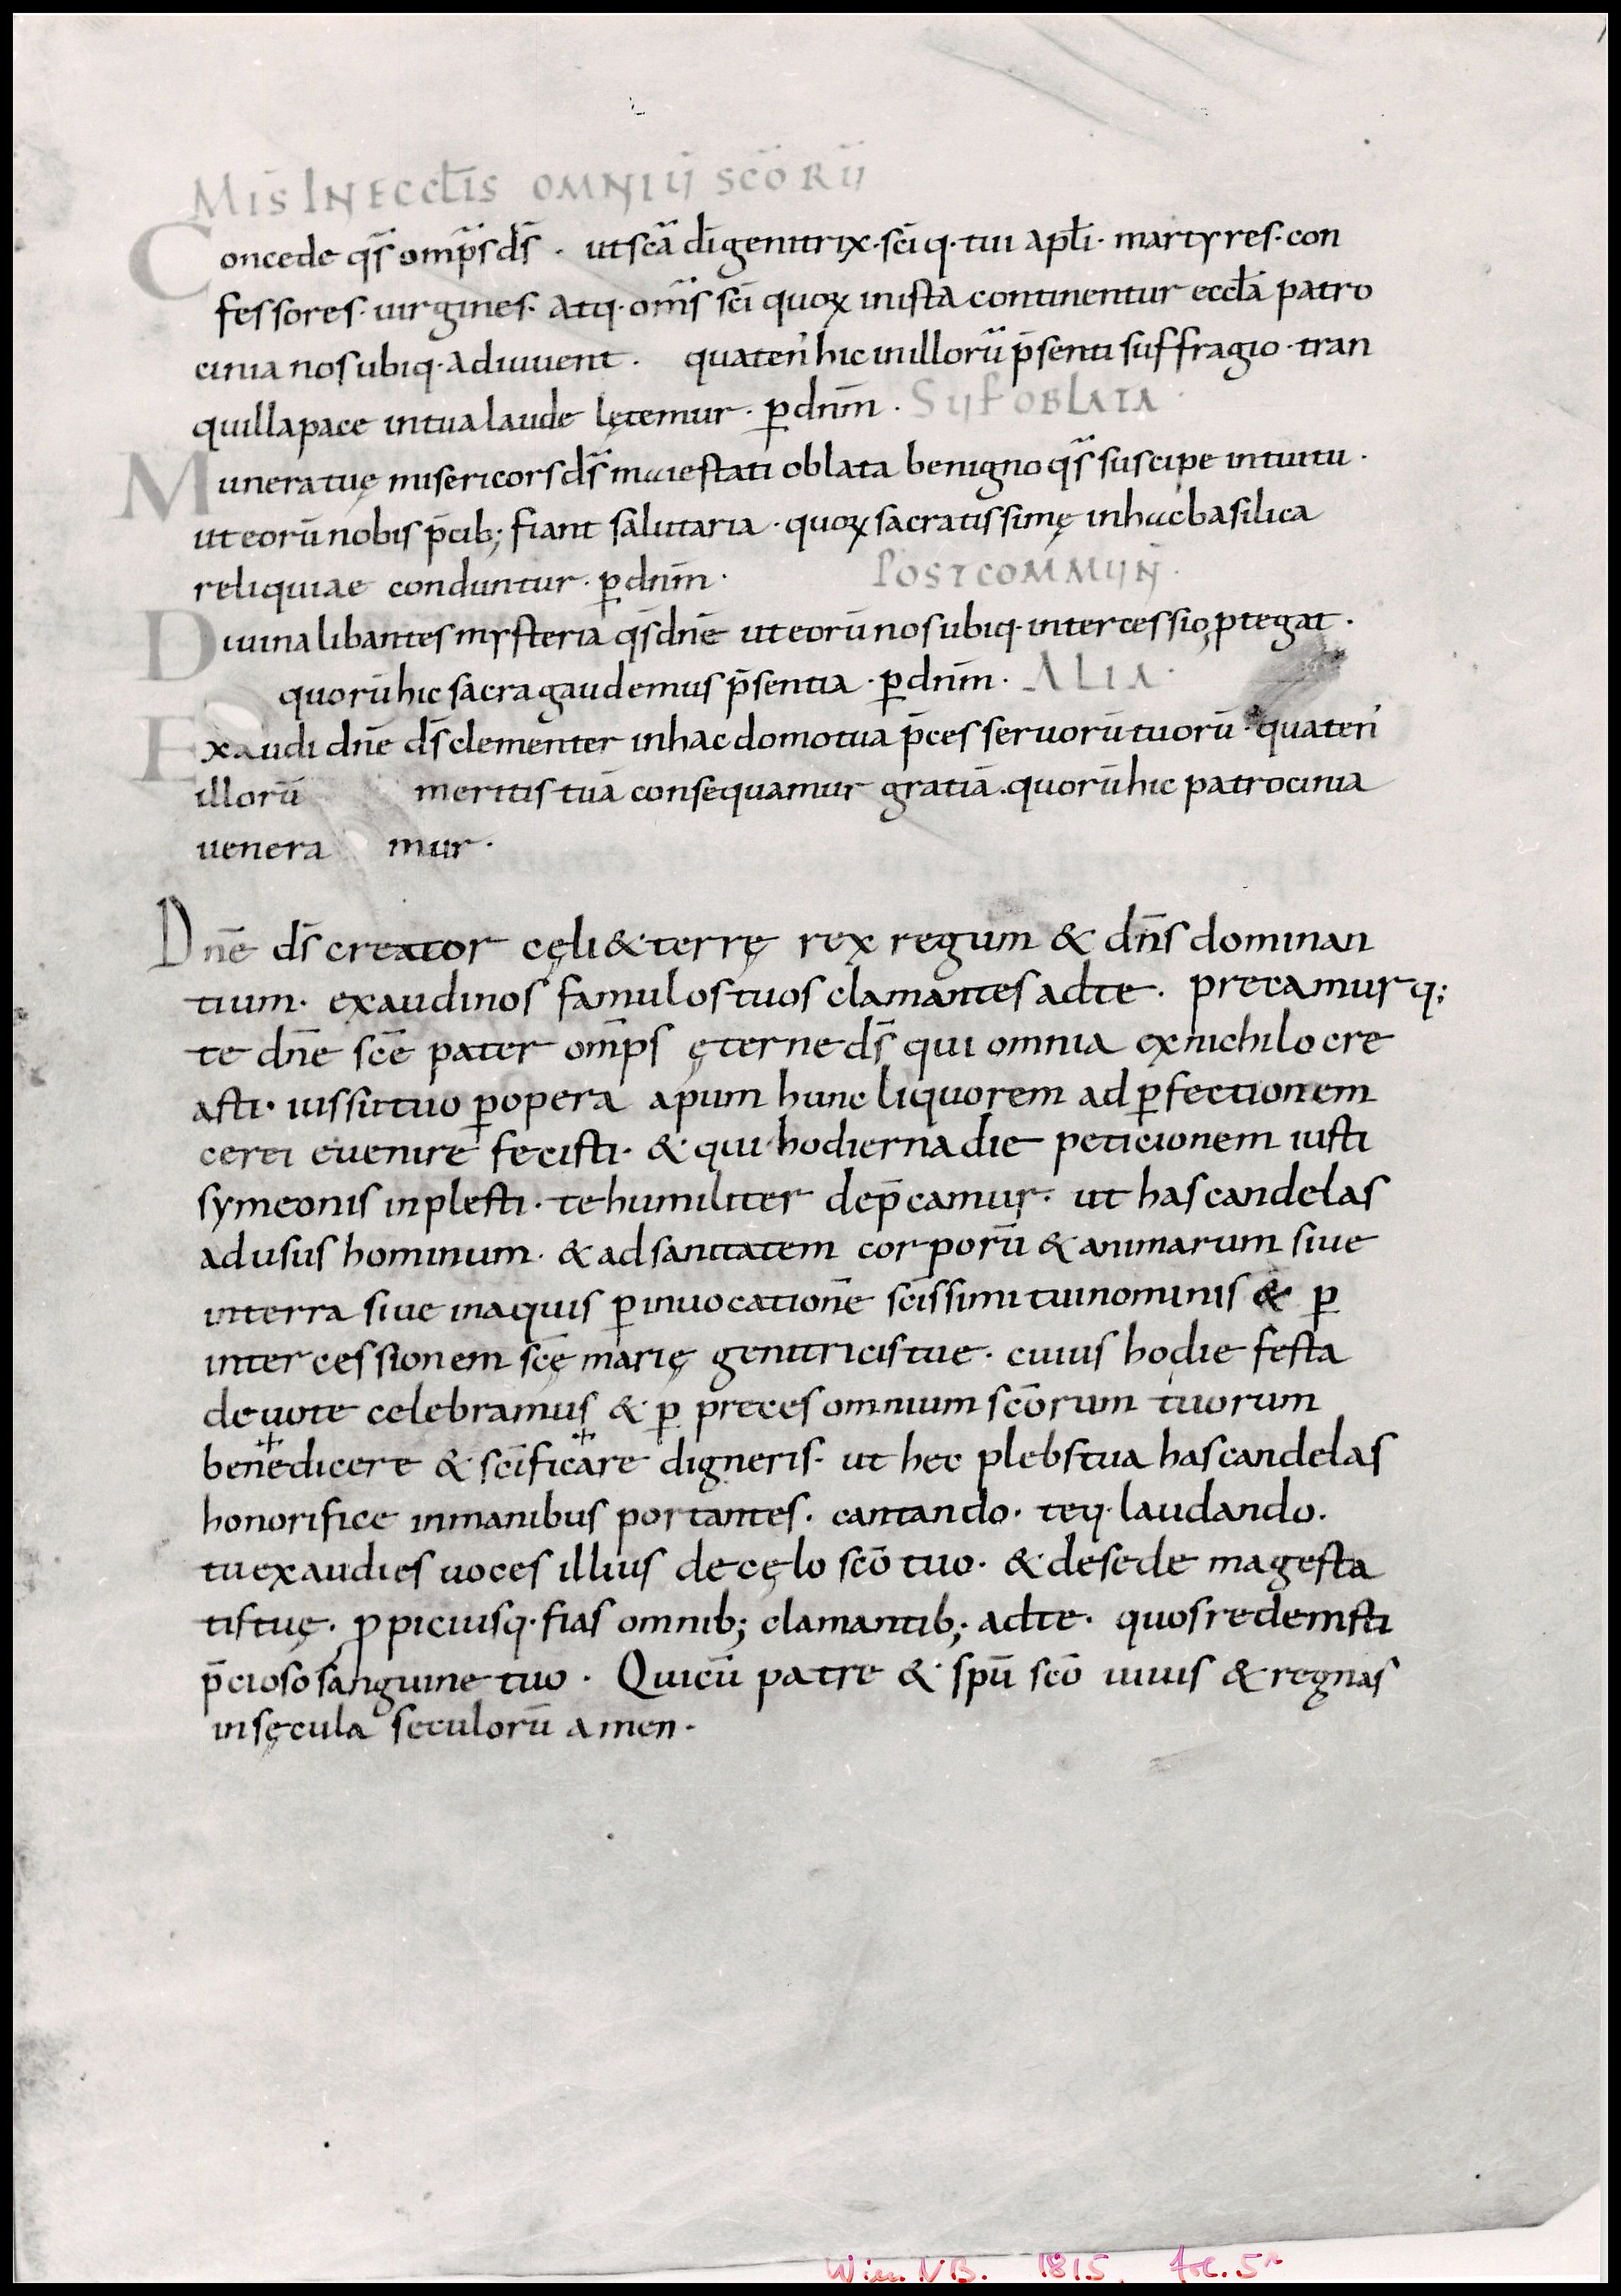 MIS̄ IN ECCL̄IS OMNIŪ SCŌRŪ
Concede qs̄ omp̄s ds̄ · ut sc̄a dī genitrix · sc̄iq· tui apl̄i · martyres · con
fessores · uirgines · atq· om̄s sc̄i quoꝝ in ista continentur eccl̄a patro
cinia nos ubiq· adiuuent · quaten̄ hic in illorū p̄senti suffragio · tran
quilla pace in tua laude lętemur · ꝑ dnm̄ · SUP OBLATA ·
Munera tuę misericors ds̄ maiestati oblata benigno qs̄ suscipe intuitu ·
ut eorū nobis p̄cib; fiant salutaria · quoꝝ sacratissimę in hac basilica
reliquiae conduntur · ꝑ dnm̄ · POSTCOMMUN̄ ·
Diuina libantes mysteria qs̄ dnē ut eorū nos ubiq· intercessio ꝓtegat ·
quorū hic sacra gaudemus p̄sentia · ꝑ dnm̄ · ALIA ·
Exaudi dnē ds̄ clementer in hac domo tua p̄ces seruorū tuorū · quaten̄
illorū meritis tuā consequamur gratiā · quorū hic patrocinia
uenera mur ·
Dnē ds̄ creator cęli & terrę rex regum & dn̄s dominan
tium · exaudi nos famulos tuos clamantes ad te · precamurq;
te dnē sc̄e pater omp̄s ęterne ds̄ qui omnia ex nichilo cre
asti · iussu tuo ꝑ opera apum hunc liquorem ad ꝑfectionem
cerei euenire fecisti · & qui hodierna die peticionem iusti
symeonis inplesti · te humiliter dep̄camur · ut has candelas
ad usus hominum · & ad sanitatem corporū & animarum siue
in terra siue in aquis ꝑ inuocationē sc̄issimi tui nominis & ꝑ
intercessionem sc̄ę marię genitricis tue · cuius hodie festa
deuote celebramus & ꝑ preces omnium sc̄orum tuorum
bene+dicere & sc̄ifi+care digneris · ut hec plebs tua has candelas
honorifice in manibus portantes · cantando · teq· laudando ·
tu exaudies uoces illius de cęlo sc̄o tuo · & de sede magesta
tis tuę · ꝓpiciusq· fias omnib; clamantib; ad te · quos redemisti
p̄cioso sanguine tuo · Qui cū patre & sp̄u sc̄o uiuis & regnas
in sęcula seculorū amen ·
Wien. NB. 1815. fol. 5r